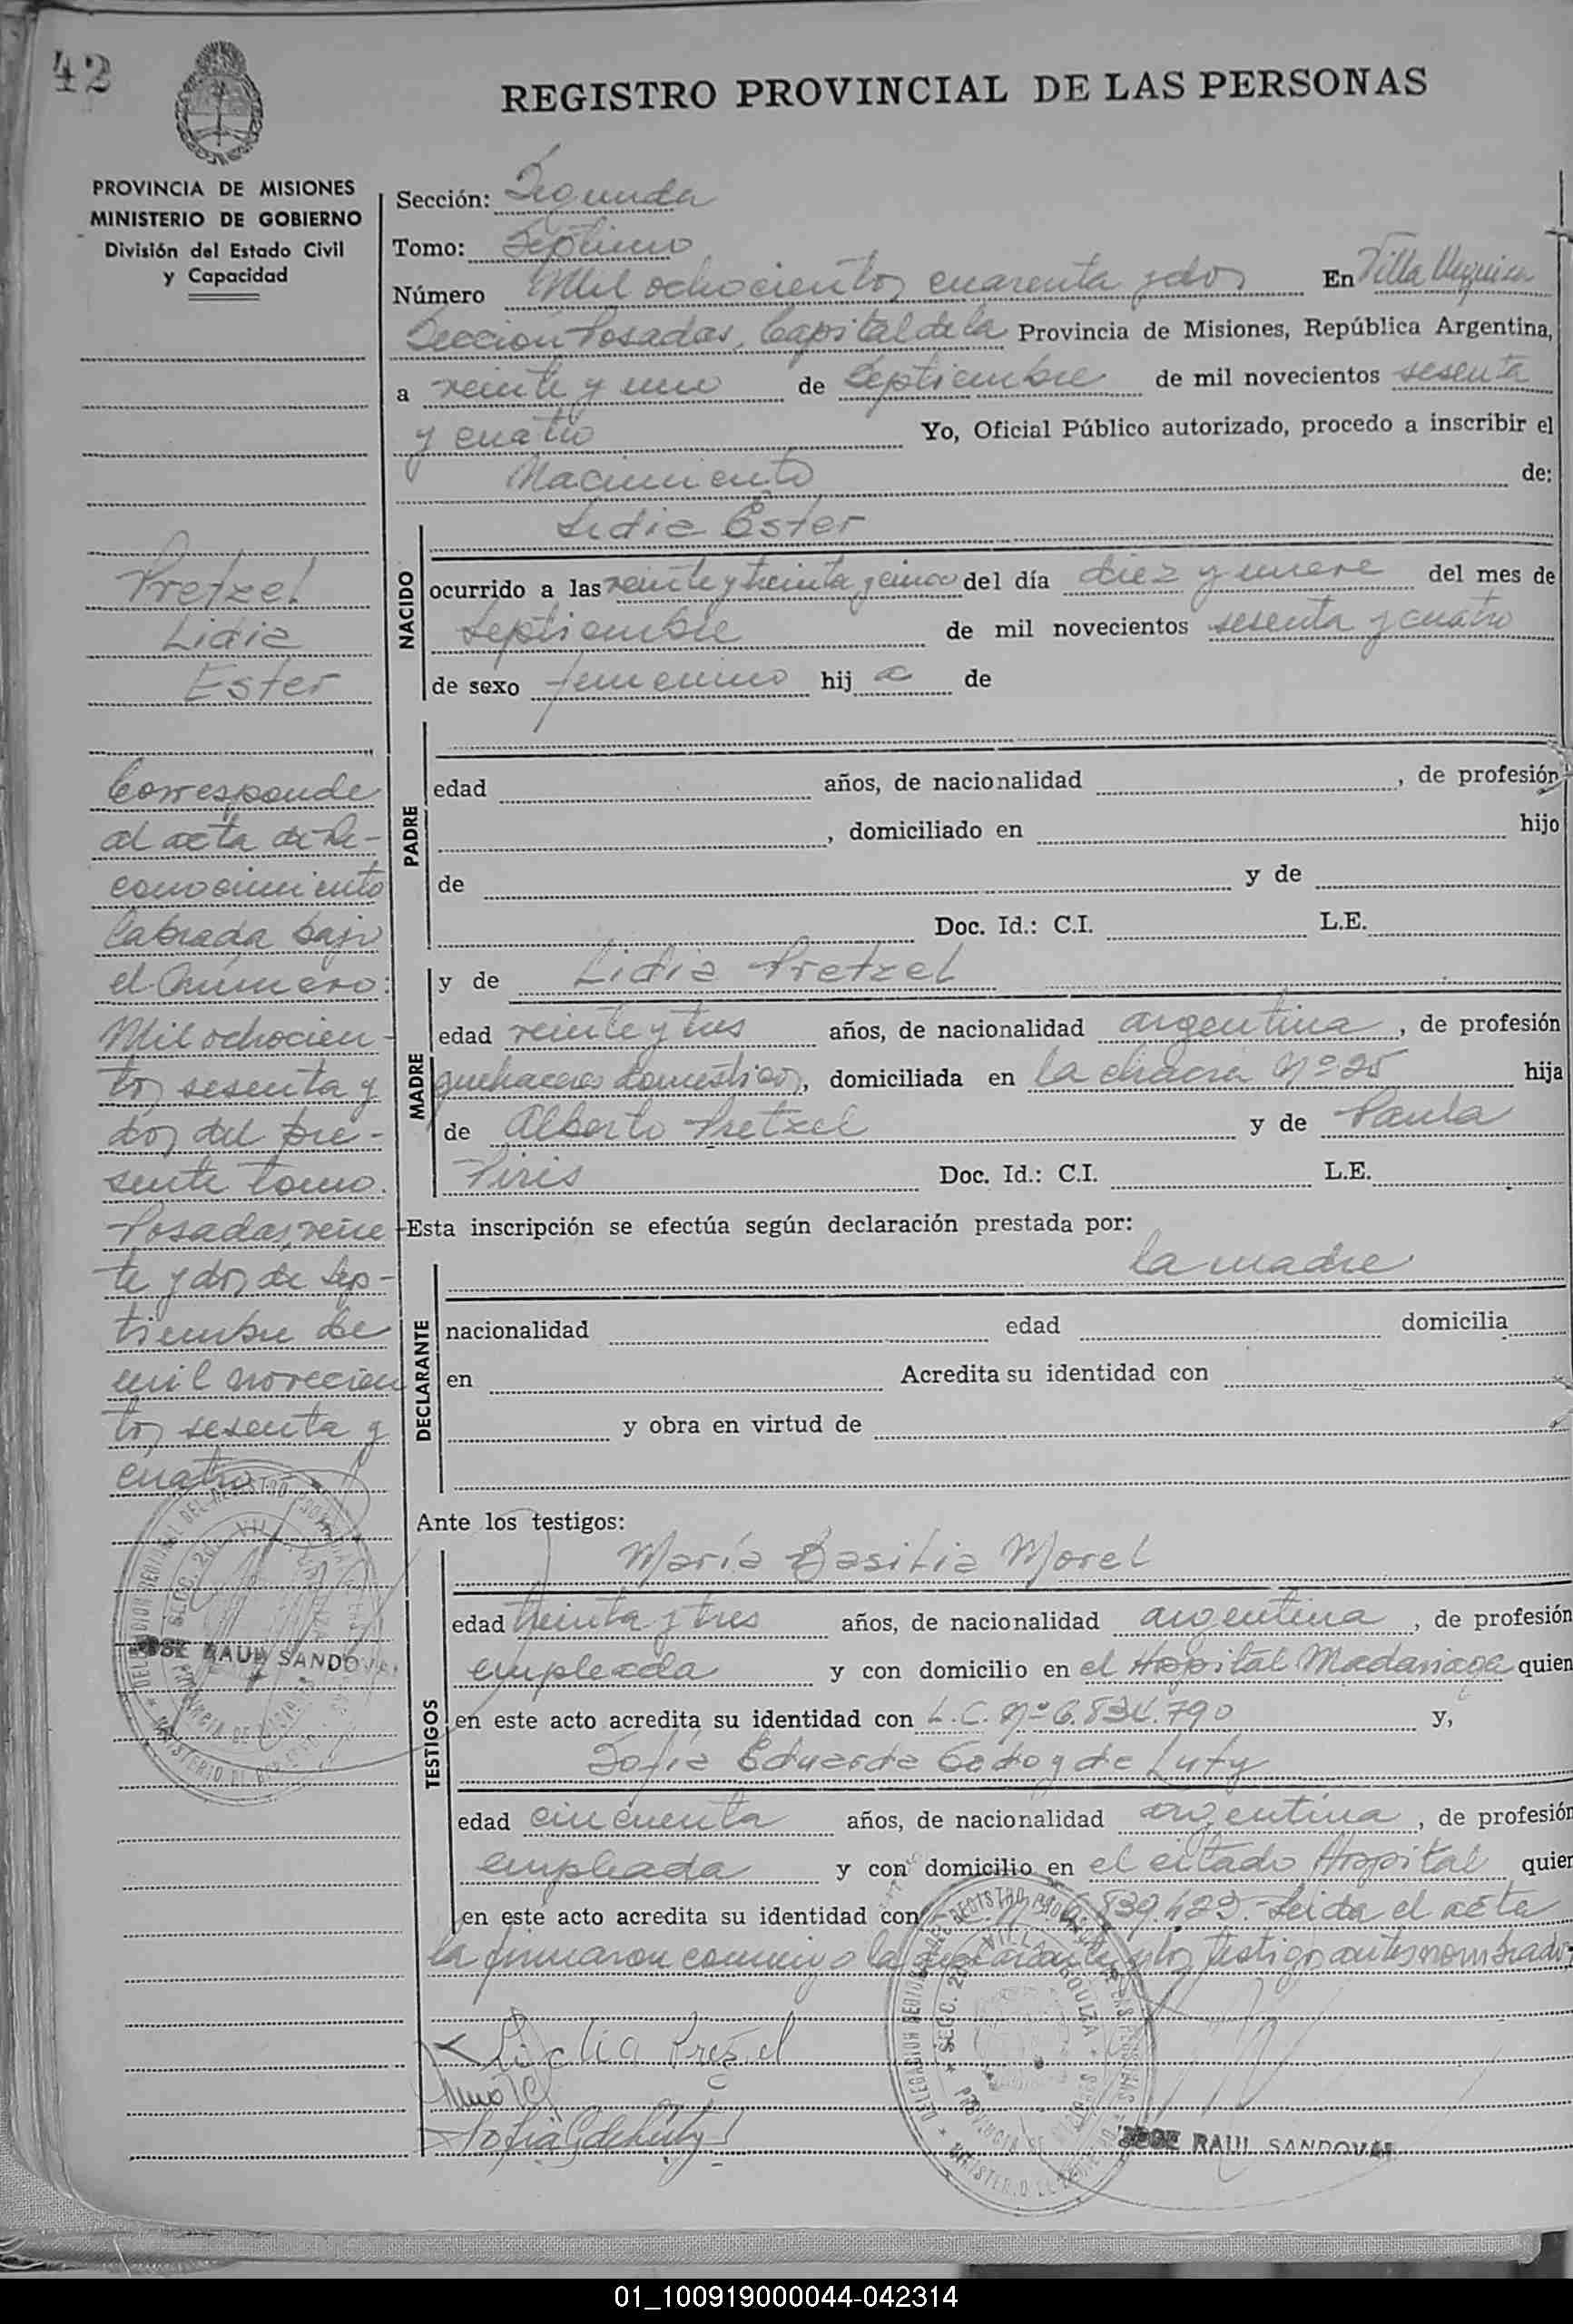 42
REGISTRO PROVINCIAL DE LAS PERSONAS
PROVINCIA DE MISIONES
MINISTERIO DE GOBIERNO
División del Estado Civil
y Capacidad
Pretzel
Lidia
Ester
Corresponde
al acta de Re-
conocimiento
labrada bajo
el Número:
Mil ochocien-
tos sesenta y
dos del pre-
sente tomo.
Posadas, vein
te y dos de Sep-
tiembre de
mil novecien
tos sesenta y
cuatro
JOSE RAUL SANDOVAL
Sección: Segunda
Tomo: Septimo
Número Mil ochocientos cuarenta y dos En Villa Urquiza
Sección Posadas, Capital de la Provincia de Misiones, República Argentina,
a veinte y uno de Septiembre de mil novecientos sesenta
y cuatro Yo, Oficial Público autorizado, procedo a inscribir el
Nacimiento de:
NACIDO
Lidia Ester
ocurrido a las veinte y treinta y cinco del día diez y nueve del mes de
Septiembre de mil novecientos sesenta y cuatro
de sexo femenino hij a de
PADRE
edad años, de nacionalidad , de profesión
, domiciliado en hijo
de y de
Doc. Id.: C.I. L.E.
MADRE
y de Lidia Pretzel
edad veinte y tres años, de nacionalidad argentina, de profesión
quehaceres domesticos, domiciliada en la chacra Nº 25 hija
de Alberto Pretzel y de Paula
Piris Doc. Id.: C.I. L.E.
Esta inscripción se efectúa según declaración prestada por:
DECLARANTE
la madre
nacionalidad edad domicilia
en Acredita su identidad con
y obra en virtud de
Ante los testigos:
TESTIGOS
María Basilia Morel
edad treinta y tres años, de nacionalidad argentina, de profesión
empleada y con domicilio en el Hospital Madariaga quien
en este acto acredita su identidad con L.C. Nº 6.834.790 y,
Sofia Eduarda Godoy de Luty
edad cincuenta años, de nacionalidad argentina, de profesión
empleada y con domicilio en el citado Hospital quien
en este acto acredita su identidad con Leida el acta
la firmaron conmigo la y los testigos antes nombrados
Lidia Prezel
Sofia G de Luty
JOSE RAUL SANDOVAL
01_100919000044-042314